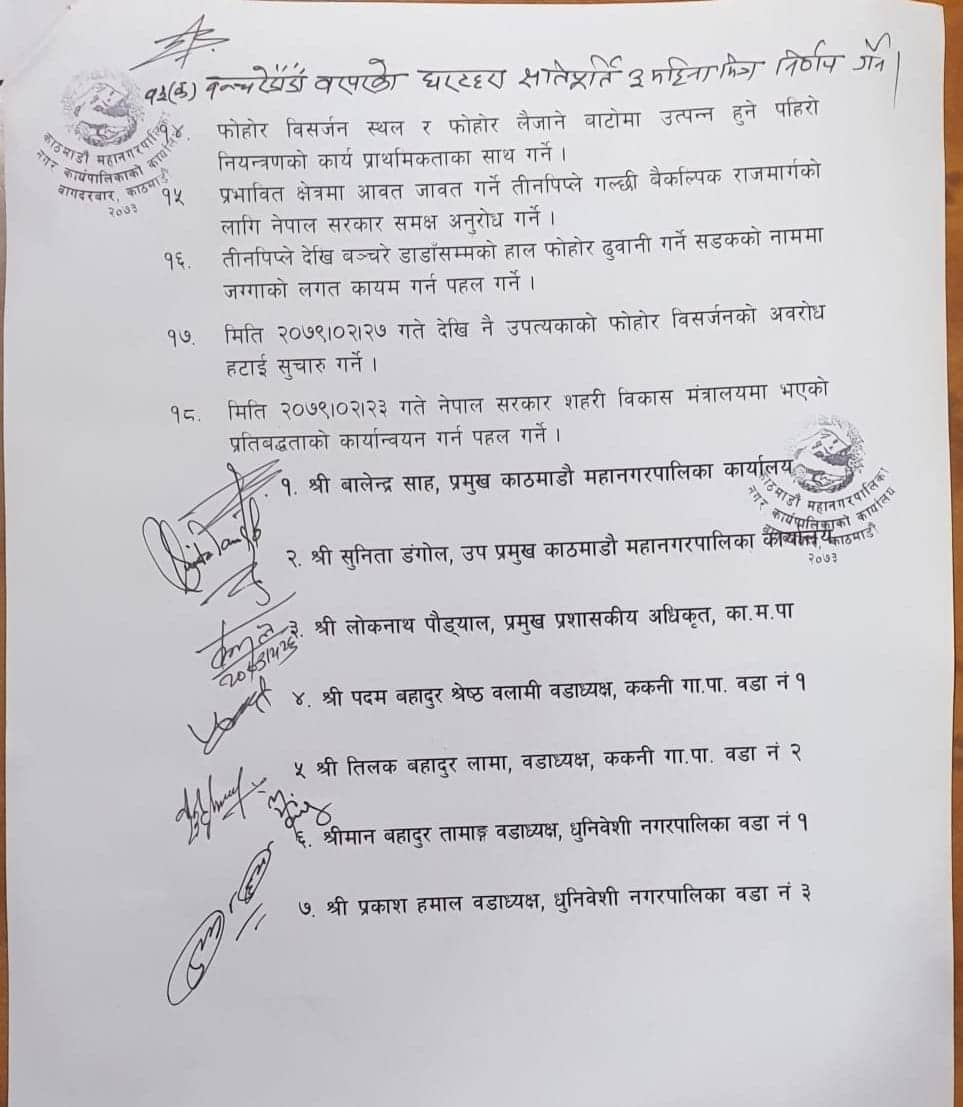 १३(क) बन्चरेडाँडा वरपरको घरटहरा क्षतिपूर्ति ३ महिना भित्र निर्णय गर्ने।
१४. फोहोर विसर्जन स्थल र फोहोर लैजाने वाटोमा उत्पन्न हुने पहिरो
नियन्त्रणको कार्य प्राथमिकताका साथ गर्ने ।
१५ प्रभावित क्षेत्रमा आवत जावत गर्ने तीनपिप्ले गल्छी बैकल्पिक राजमार्गको
लागि नेपाल सरकार समक्ष अनुरोध गर्ने ।
१६. तीनपिप्ले देखि बञ्चरे डाडाँसम्मको हाल फोहोर ढुवानी गर्ने सडकको नाममा
जग्गाको लगत कायम गर्न पहल गर्ने ।
१७. मिति २०७९।०२।२७ गते देखि नै उपत्यकाको फोहोर विसर्जनको अवरोध
हटाई सुचारु गर्ने ।
१८. मिति २०७९।०२।२३ गते नेपाल सरकार शहरी विकास मंत्रालयमा भएको
प्रतिबद्धताको कार्यान्वयन गर्न पहल गर्ने ।
१. श्री बालेन्द्र साह, प्रमुख काठमाडौ महानगरपालिका कार्यालय
२. श्री सुनिता डंगोल, उप प्रमुख काठमाडौ महानगरपालिका कार्यालय
३. श्री लोकनाथ पौड्याल, प्रमुख प्रशासकीय अधिकृत, का.म.पा
४. श्री पदम बहादुर श्रेष्ठ वलामी वडाध्यक्ष, ककनी गा.पा. वडा नं १
५ श्री तिलक बहादुर लामा, वडाध्यक्ष, ककनी गा.पा. वडा नं २
६. श्रीमान बहादुर तामाङ्ग वडाध्यक्ष, धुनिवेशी नगरपालिका वडा नं १
७. श्री प्रकाश हमाल वडाध्यक्ष, धुनिवेशी नगरपालिका वडा नं ३
काठमाडौं महानगरपालिका
नगर कार्यपालिकाको कार्यालय
बागदरबार, काठमाडौं
२०७३
काठमाडौं महानगरपालिका
नगर कार्यपालिकाको कार्यालय
काठमाडौं
२०७३